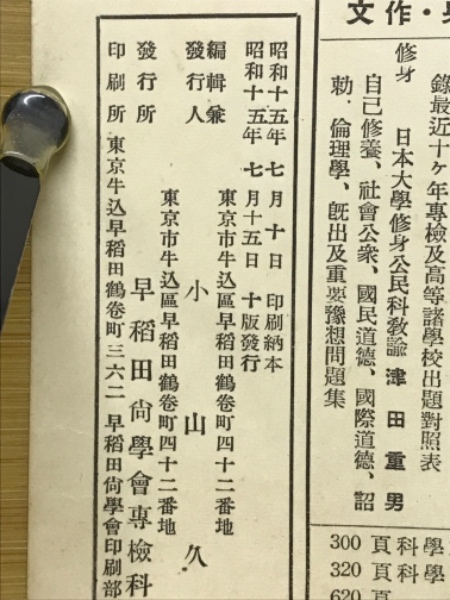 文作・
錄最近十ケ年專檢及高等諸學校出題對照表
修身　日本大學修身公民科敎諭 津田重男
自己修養、社會公衆、國民道德、國際道德、詔
勅、倫理學、旣出及重要豫想問題集
300 頁科學
320 頁科學
620 頁
昭和十五年七月十日 印刷納本
昭和十五年七月十五日 十版發行
東京市牛込區早稻田鶴卷町四十二番地
編輯兼
發行人 小山久
東京市牛込區早稻田鶴卷町四十二番地
發行所 早稻田尙學會專檢科
印刷所 東京牛込早稻田鶴卷町三六二 早稻田尙學會印刷部